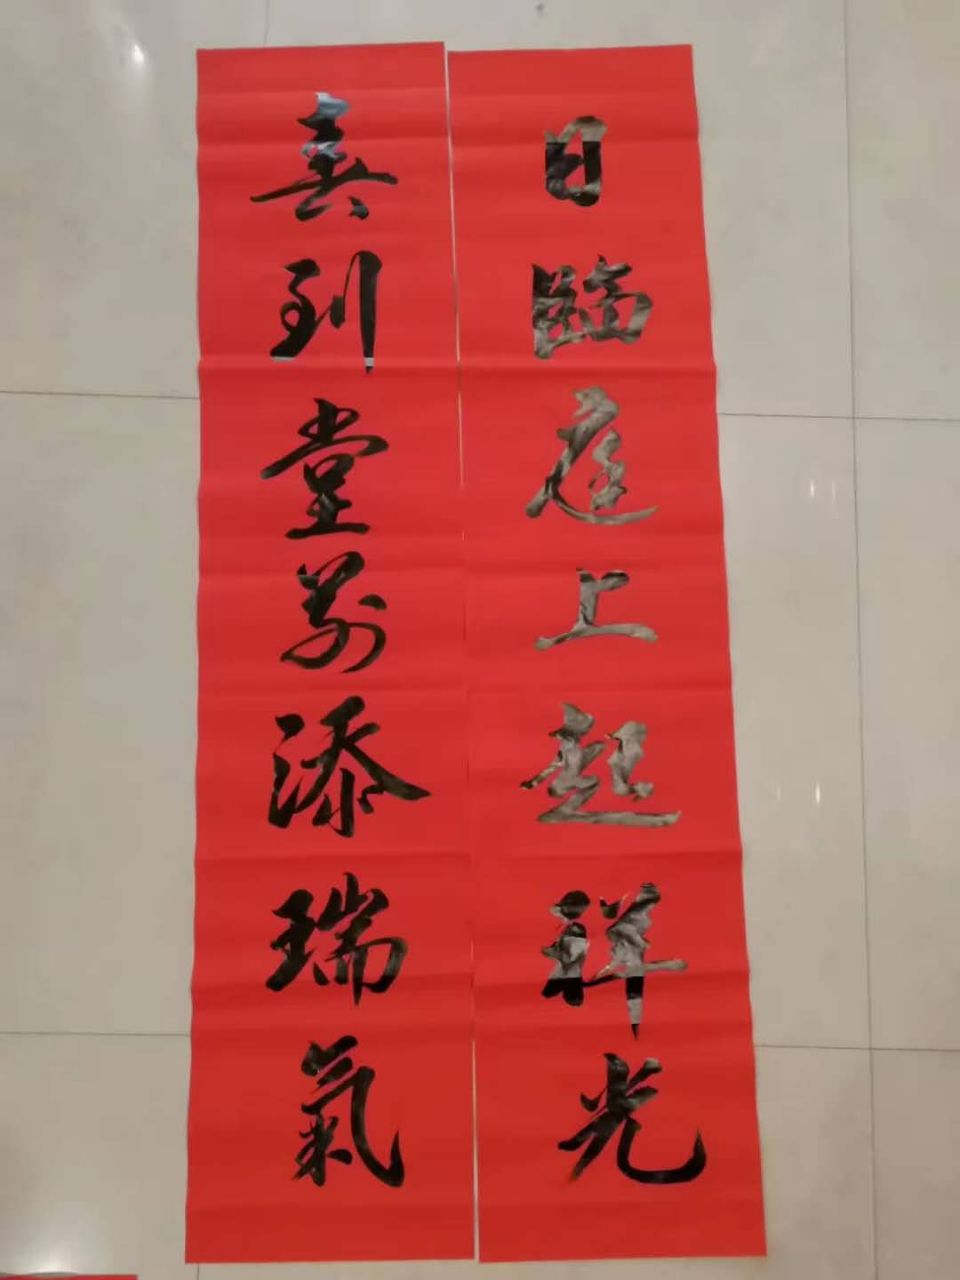 日臨庭上起祥光
喜到堂前添瑞氣